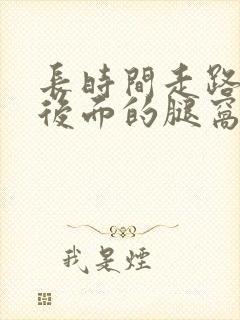 長時間走路
後面的腿窩
我是煙